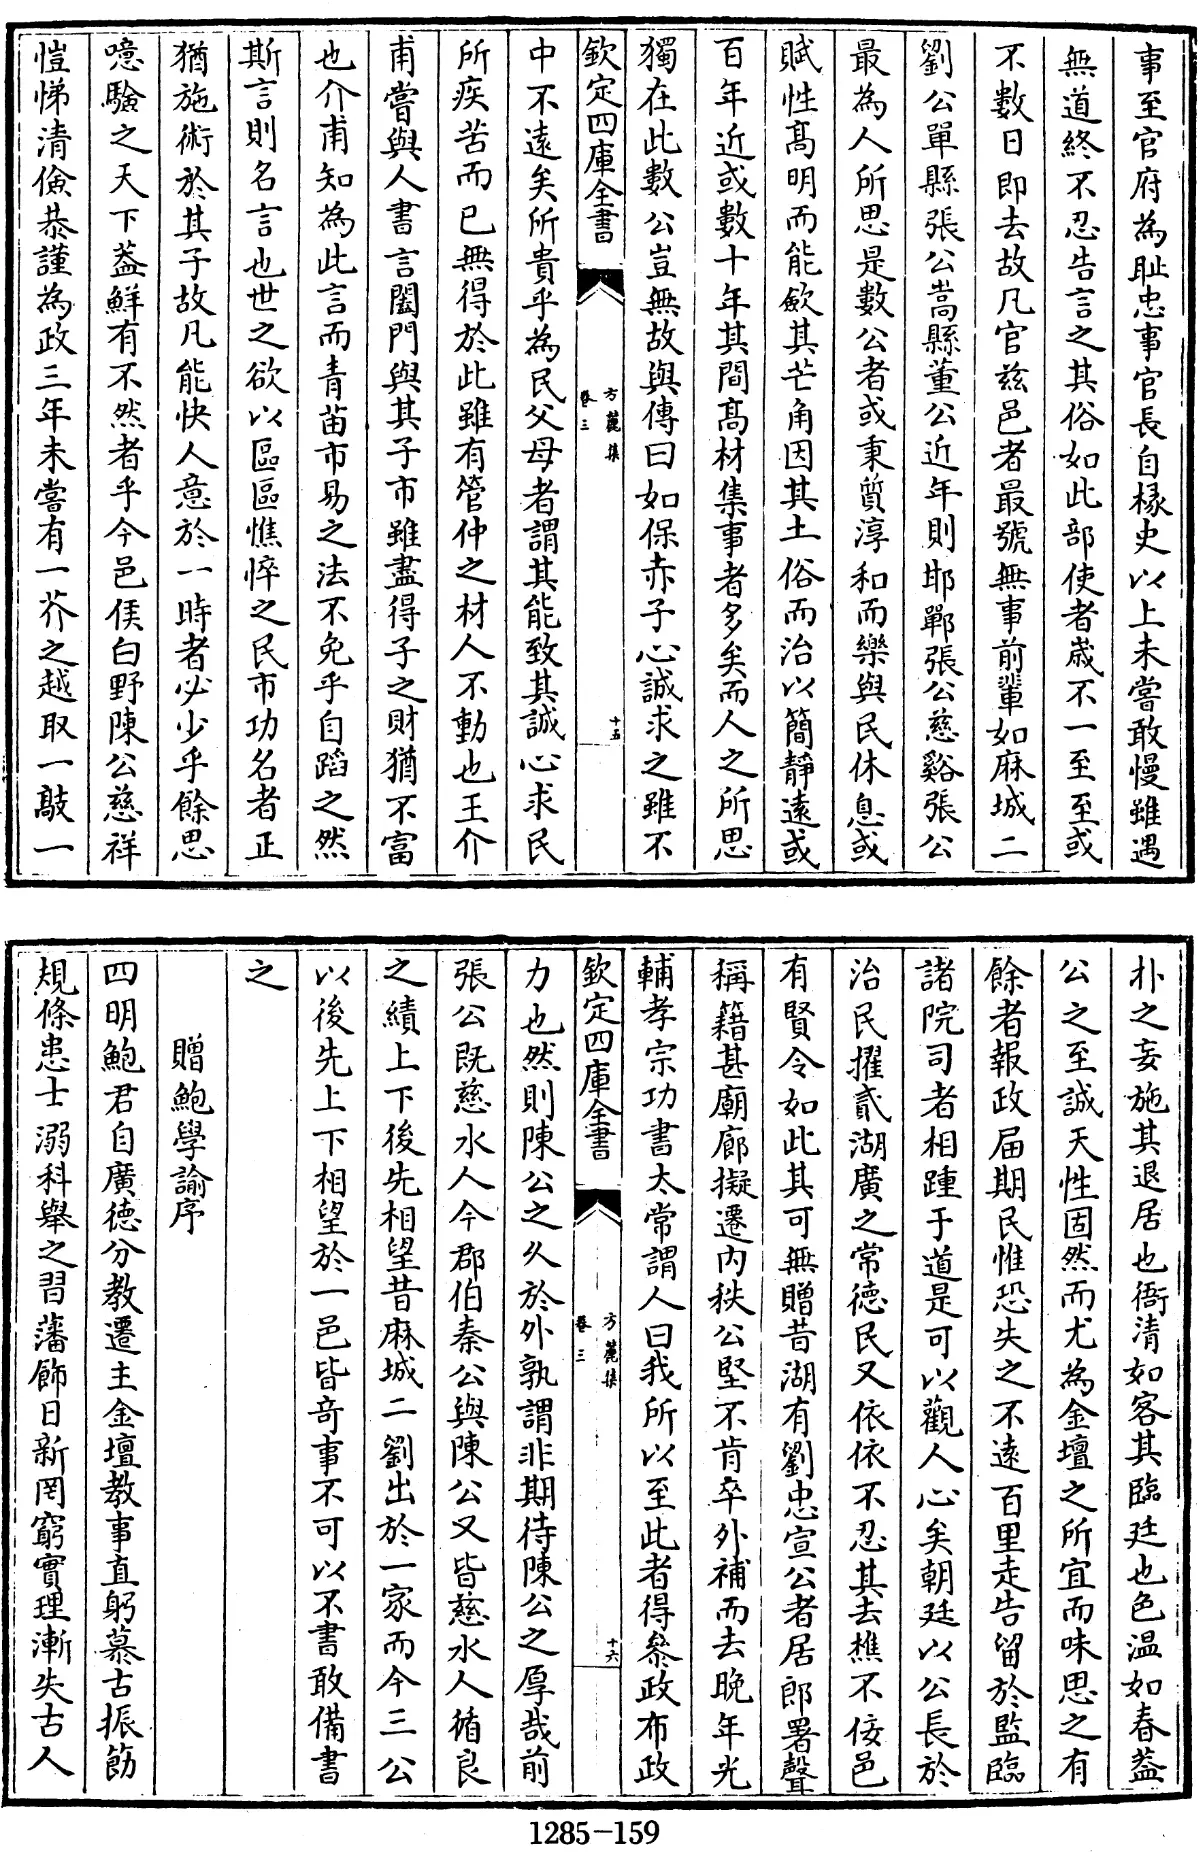 事至官府為恥忠事官長自椽史以上未嘗敢慢雖遇
無道終不忍告言之其俗如此部使者歲不一至至或
不數日即去故凡官茲邑者最號無事前輩如麻城二
劉公單縣張公嵩縣董公近年則邯鄲張公慈谿張公
最為人所思是數公者或秉質淳和而樂與民休息或
賦性髙明而能歛其芒角因其土俗而治以簡靜遠或
百年近或數十年其間髙材集事者多矣而人之所思
獨在此數公豈無故與傳曰如保赤子心誠求之雖不
欽定四庫全書
方麓集
卷三
十五
中不遠矣所貴乎為民父母者謂其能致其誠心求民
所疾苦而已無得於此雖有管仲之材人不動也王介
甫嘗與人書言闔門與其子市雖盡得子之財猶不富
也介甫知為此言而青苗市易之法不免乎自蹈之然
斯言則名言也世之欲以區區憔悴之民市功名者正
猶施術於其子故凡能快人意於一時者必少乎餘思
噫驗之天下葢鮮有不然者乎今邑侯白野陳公慈祥
愷悌清儉恭謹為政三年未嘗有一芥之越取一敲一
朴之妄施其退居也衙清如客其臨廷也色温如春葢
公之至誠天性固然而尤為金壇之所宜而味思之有
餘者報政届期民惟恐失之不遠百里走告留於監臨
諸院司者相踵于道是可以觀人心矣朝廷以公長於
治民擢貳湖廣之常徳民又依依不忍其去樵不佞邑
有賢令如此其可無贈昔湖有劉忠宣公者居郎署聲
稱籍甚廟廊擬遷内秩公堅不肯卒外補而去晚年光
輔孝宗功書太常謂人曰我所以至此者得叅政布政
欽定四庫全書
方麓集
卷三
十六
力也然則陳公之乆於外孰謂非期待陳公之厚哉前
張公既慈水人今郡伯秦公與陳公又皆慈水人循良
之績上下後先相望昔麻城二劉出於一家而今三公
以後先上下相望於一邑皆竒事不可以不書敢備書
之
贈鮑學諭序
四明鮑君自廣徳分教遷主金壇教事直躬慕古振飭
規條患士溺科舉之習藩飾日新罔窮實理漸失古人
1285-159